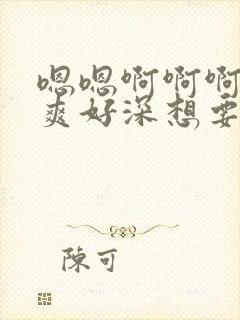 嗯嗯啊啊啊
爽好深想要
陳可